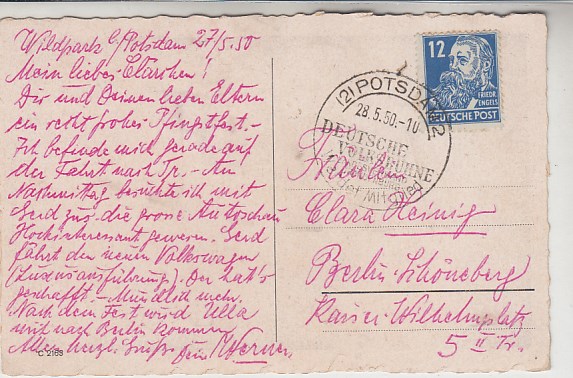 Wildpark b/Potsdam 27/5.50
Mein liebes Clärchen!
Dir und Deinen lieben Eltern
ein recht frohes Pfingstfest. -
Ich befinde mich gerade auf
der Fahrt nach Tr. - Am
Nachmittag besuchte ich mit
Gerd zus. die grosse Autoschau
Hochinteressant gewesen. Gerd
fährt den neuen Volkswagen
(Luxusausführung). Der hat's
geschafft. - Mündlich mehr.
Nach dem Fest wird Ulla
mit nach Berlin kommen
Alles herzl. Grüße Dein Werner.
C 2163
12
FRIEDR.
ENGELS
DEUTSCHE POST
(2) POTSDAM 2
28.5.50.-10
DEUTSCHE
VOLKSBÜHNE
Mitglied
Fräulein
Clara Heinig
Berlin-Schöneberg
Kaiser-Wilhelmplatz
5 II Tr.